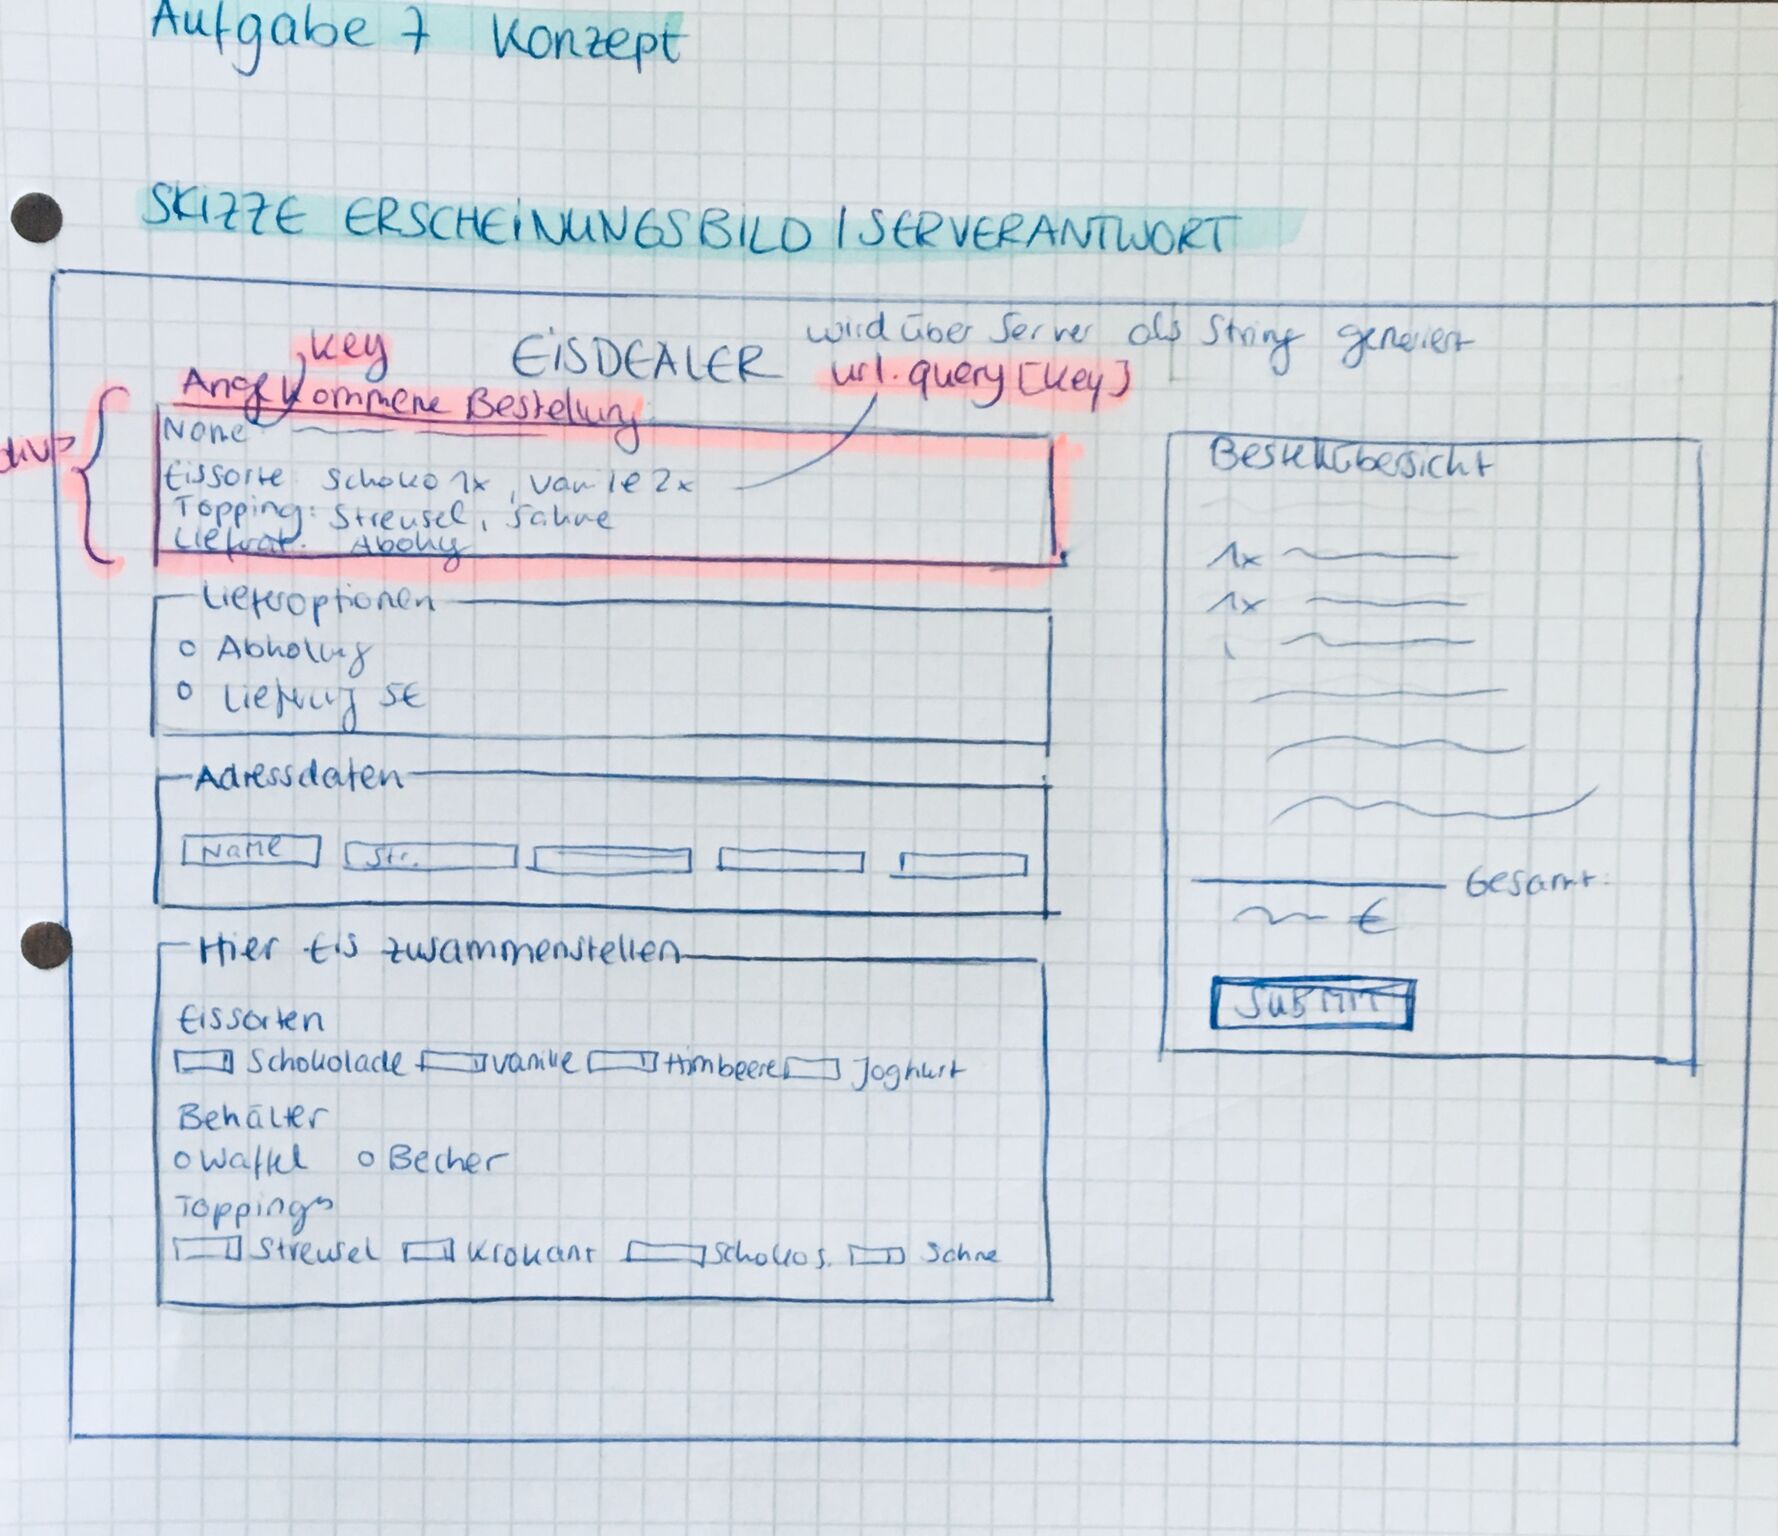 Aufgabe 7 Konzept
SKIZZE ERSCHEINUNGSBILD / SERVERANTWORT
key
EISDEALER
wird über Server als String generiert
url.query[key]
Angekommene Bestellung
Name
Eissorte: Schoko 1x, Vanille 2x
Topping: Streusel, Sahne
Lieferoptionen
o Abholung
o Lieferung 5€
Adressdaten
Name Str.
Hier Eis zusammenstellen
Eissorten
Schokolade Vanille Himbeere Joghurt
Behälter
o Waffel o Becher
Toppings
Streusel Krokant Schokos. Sahne
Bestellübersicht
1x
1x
Gesamt:
€
SUBMIT